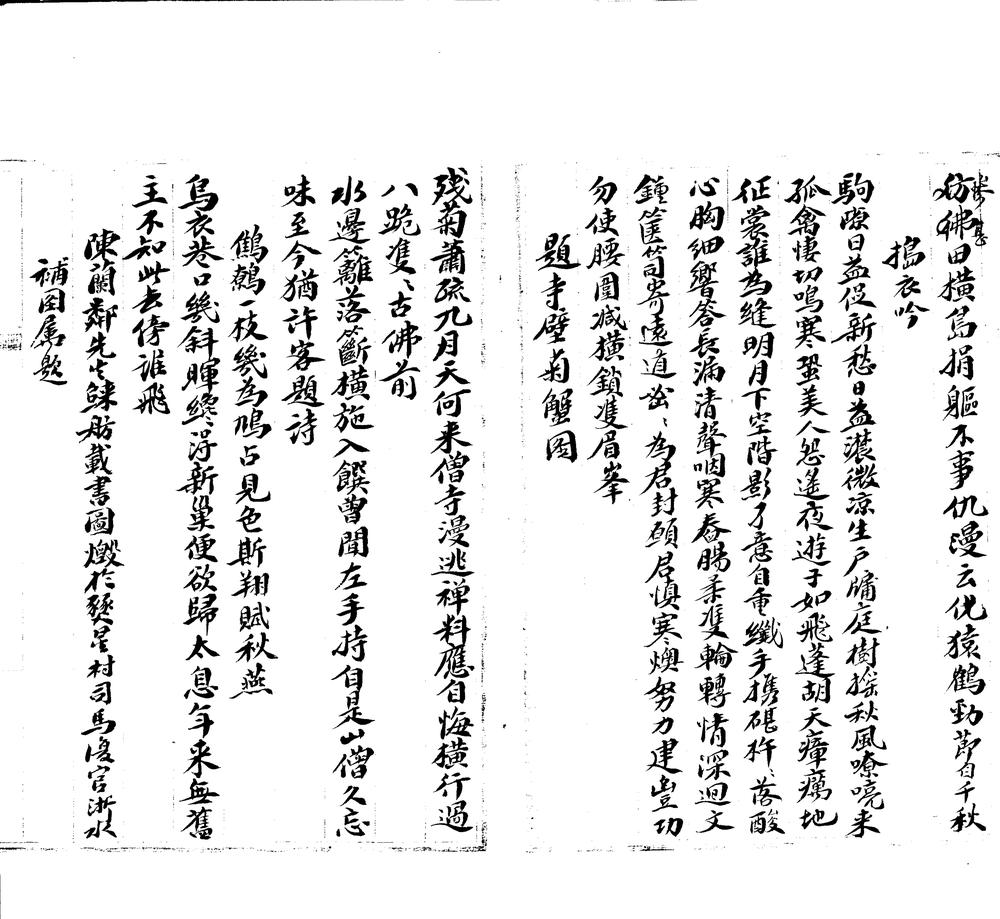 彷彿田橫島捐軀不事仇漫云化猿鶴勁節自千秋
搗衣吟
駒隙日益促新愁日益濃微涼生戶牖庭樹搖秋風嘹喨來
孤禽悽切鳴寒蛩美人怨遙夜遊子如飛蓬胡天瘴癘地
征裳誰為縫明月下空階影孑意自重纖手攜砧杵杵落酸
心胸細響答長漏清聲咽寒舂腸柔雙輪轉情深迴文
鍾篋笥寄遠道鄭重為君封願君慎寒燠努力建豐功
勿使腰圍減橫鎖雙眉峯
題寺壁菊蟹圖
殘菊蕭疏九月天何來僧寺漫逃禅料應自悔橫行過
八跪雙雙古佛前
水邊籬落籪橫施入饌曾聞左手持自是山僧久忘
味至今猶許客題詩
鷦鷯一枝幾為鳩占見色斯翔賦秋燕
烏衣巷口幾斜暉纔得新巢便欲歸太息年來無舊
主不知此去傍誰飛
陳蘭鄰先生鰈舫載書圖燬於燹星村司馬復官浙水
補图屬題